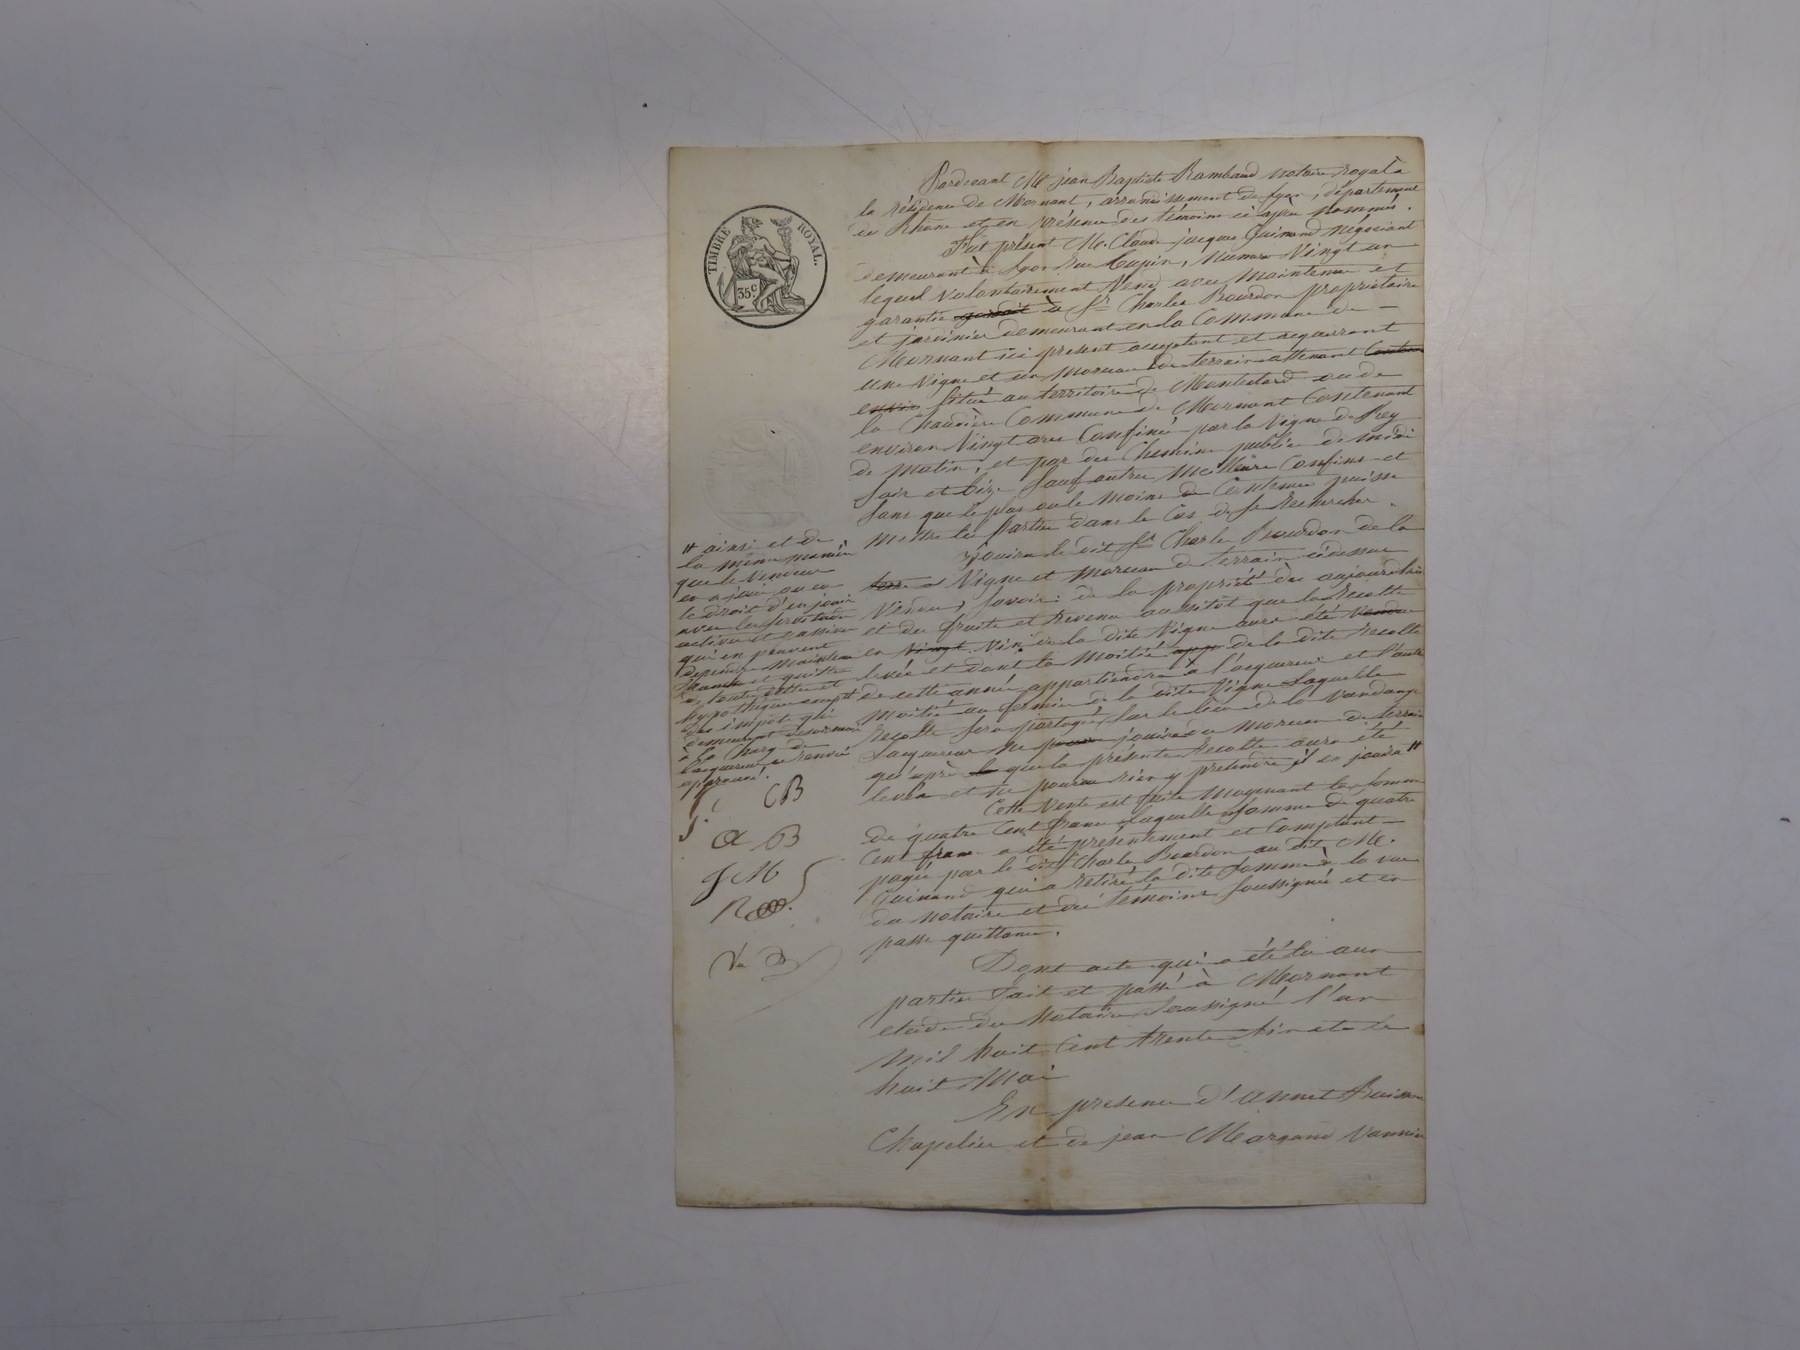 TIMBRE ROYAL.
35c
Pardevant Me jean Baptiste Rambaud notaire royal à
la résidence de Mornant, arrondissement de Lyon, département
du Rhone et en présence des témoins ci après nommés.
Fut présent Mr. Claude jacques Guinand négociant
demeurant à Lyon rue Tupin, Numero Vingt un
lequel volontairement Vend avec maintenue et
garantie à Sr Charles Bourdon propriétaire
et jardinier demeurant en la Commune de
Mornant ici present acceptant et acquerrant
une Vigne et un morceau de terrain attenant
Situé au territoire de ou de
la Chaudière Commune de Mornant Contenant
environ Vingt ares Confiné par la Vigne de Rey
de matin, et par des Chemins publics de midi
soir et bize Sauf autres Meilleurs Confins et
sans que le plus ou le moins de Contenue puisse
mettre les parties dans le Cas de se Rechercher.
jouira le dit Sr Charles Bourdon de la
Vigne et morceau de terrain cidessus
Vendus, Savoir: de la propriété dès aujourdhui
et des fruits et revenus aussitôt que la Recolte
en Vin de la dite Vigne aura été
levée et dont la Moitié de la dite Recolte
de cette année appartiendra à l'acquereur et l'autre
moitié au fermier de la dite Vigne Laquelle
Recolte sera partagée sur le lieu de la Vandange
Lacquereur ne jouira du morceau de terrain
qu'après que la présente Recolte aura été
levée et ne pourra rien y pretendre il en jouira #
Cette Vente est faite moyenant la somme
de quatre Cent francs Laquelle Somme de quatre
Cent francs a été présentement et Comptant
payée par le dit Sr Charles Bourdon au dit Mr.
Guinand qui a retiré la dite Somme à la vue
du notaire et des témoins soussignés et en
passe quittance.
Dont acte qui a été lu aux
parties Fait et passé à Mornant
etude du Notaire Soussigné l'an
Mil huit Cent trente six et le
huit Mai
En presence d'annet Buisson
Chapelier et de jean Margand Vannier
# ainsi et de
la même manière
que le Vendeur
en a joui ou eu
le droit d'en jouir
avec les servitudes
actives et passives
qui en peuvent
dependre Maintenu
franche et quitte
de toutes dettes et
hypothèques excepté
des impots qui
demeurent desormais
à la Charge de
l'acquereur ce renvoi
approuvé.
CB
A B
J M